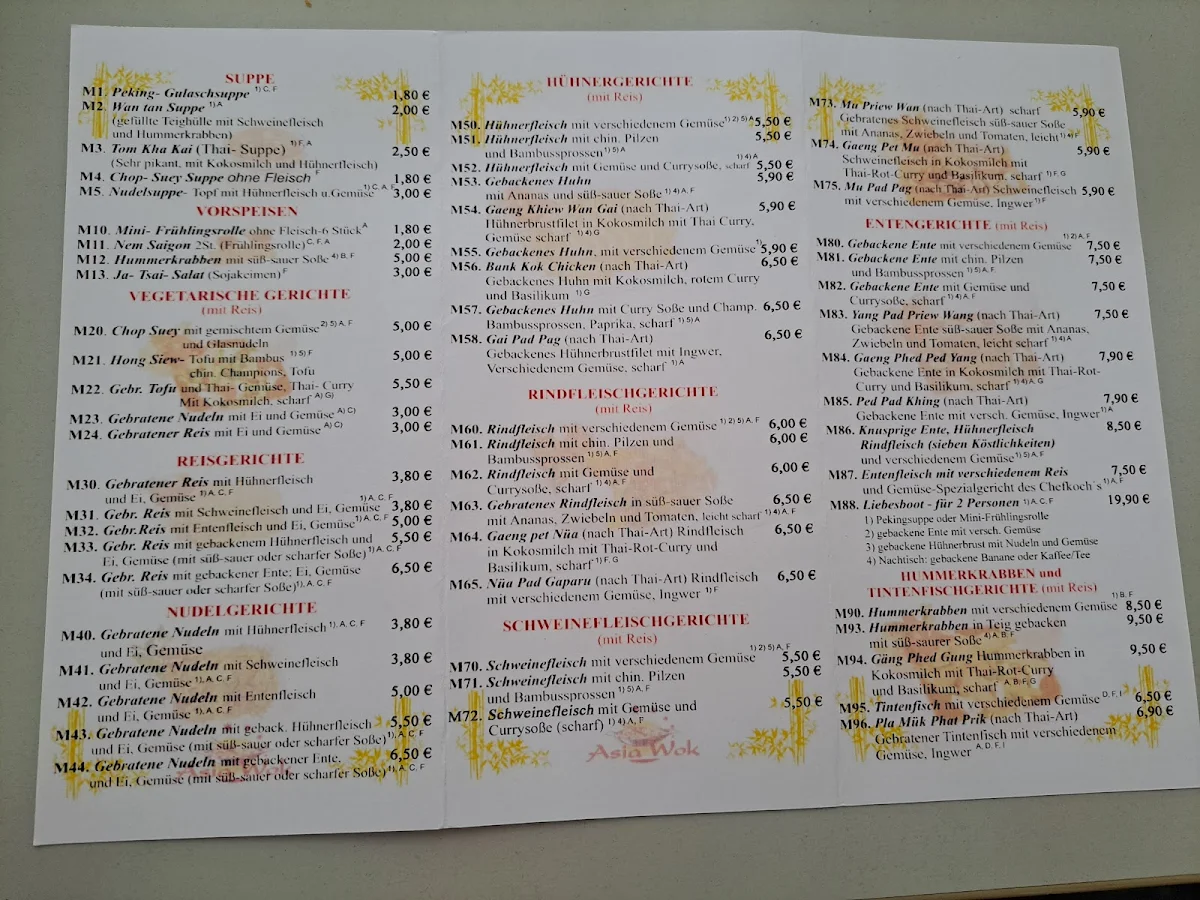 SUPPE
M1. Peking- Gulaschsuppe 1) C, F 1,80 €
M2. Wan tan Suppe 1) A 2,00 €
(gefüllte Teighülle mit Schweinefleisch
und Hummerkrabben)
M3. Tom Kha Kai (Thai- Suppe) 1) F, A 2,50 €
(Sehr pikant, mit Kokosmilch und Hühnerfleisch)
M4. Chop- Suey Suppe ohne Fleisch F 1,80 €
M5. Nudelsuppe- Topf mit Hühnerfleisch u.Gemüse 1) C, A, F 3,00 €
VORSPEISEN
M10. Mini- Frühlingsrolle ohne Fleisch-6 Stück A 1,80 €
M11. Nem Saigon 2St. (Frühlingsrolle) C, F, A 2,00 €
M12. Hummerkrabben mit süß-sauer Soße 4) B, F 5,00 €
M13. Ja- Tsai- Salat (Sojakeimen) F 3,00 €
VEGETARISCHE GERICHTE
(mit Reis)
M20. Chop Suey mit gemischtem Gemüse 2) 5) A, F 5,00 €
und Glasnudeln
M21. Hong Siew- Tofu mit Bambus 1) 5) F 5,00 €
chin. Champions, Tofu
M22. Gebr. Tofu und Thai- Gemüse, Thai- Curry 5,50 €
Mit Kokosmilch, scharf A) G)
M23. Gebratene Nudeln mit Ei und Gemüse A) C) 3,00 €
M24. Gebratener Reis mit Ei und Gemüse A) C) 3,00 €
REISGERICHTE
M30. Gebratener Reis mit Hühnerfleisch 3,80 €
und Ei, Gemüse 1) A, C, F
M31. Gebr. Reis mit Schweinefleisch und Ei, Gemüse 1) A, C, F 3,80 €
M32. Gebr.Reis mit Entenfleisch und Ei, Gemüse 1) A, C, F 5,00 €
M33. Gebr. Reis mit gebackenem Hühnerfleisch und 5,50 €
Ei, Gemüse (mit süß-sauer oder scharfer Soße) 1) A, C, F
M34. Gebr. Reis mit gebackener Ente; Ei, Gemüse 6,50 €
(mit süß-sauer oder scharfer Soße) 1), A, C, F
NUDELGERICHTE
M40. Gebratene Nudeln mit Hühnerfleisch 1), A, C, F 3,80 €
und Ei, Gemüse
M41. Gebratene Nudeln mit Schweinefleisch 3,80 €
und Ei, Gemüse 1), A, C, F
M42. Gebratene Nudeln mit Entenfleisch 5,00 €
und Ei, Gemüse 1), A, C, F
M43. Gebratene Nudeln mit geback. Hühnerfleisch 5,50 €
und Ei, Gemüse (mit süß-sauer oder scharfer Soße) 1), A, C, F
M44. Gebratene Nudeln mit gebackener Ente, 6,50 €
und Ei, Gemüse (mit süß-sauer oder scharfer Soße) 1), A, C, F
HÜHNERGERICHTE
(mit Reis)
M50. Hühnerfleisch mit verschiedenem Gemüse 1) 2) 5) A 5,50 €
M51. Hühnerfleisch mit chin. Pilzen 5,50 €
und Bambussprossen 1) 5) A
M52. Hühnerfleisch mit Gemüse und Currysoße, scharf 1) 4) A 5,50 €
M53. Gebackenes Huhn 5,90 €
mit Ananas und süß-sauer Soße 1) 4) A, F
M54. Gaeng Khiew Wan Gai (nach Thai-Art) 5,90 €
Hühnerbrustfilet in Kokosmilch mit Thai Curry,
Gemüse scharf 1) 4) G
M55. Gebackenes Huhn, mit verschiedenem Gemüse 1) 5,90 €
M56. Bank Kok Chicken (nach Thai-Art) 6,50 €
Gebackenes Huhn mit Kokosmilch, rotem Curry
und Basilikum 1) G
M57. Gebackenes Huhn mit Curry Soße und Champ. 6,50 €
Bambussprossen, Paprika, scharf 1) 5) A
M58. Gai Pad Pag (nach Thai-Art) 6,50 €
Gebackenes Hühnerbrustfilet mit Ingwer,
Verschiedenem Gemüse, scharf 1) A
RINDFLEISCHGERICHTE
(mit Reis)
M60. Rindfleisch mit verschiedenem Gemüse 1) 2) 5) A, F 6,00 €
M61. Rindfleisch mit chin. Pilzen und 6,00 €
Bambussprossen 1) 5) A, F
M62. Rindfleisch mit Gemüse und 6,00 €
Currysoße, scharf 1) 4) A, F
M63. Gebratenes Rindfleisch in süß-sauer Soße 6,50 €
mit Ananas, Zwiebeln und Tomaten, leicht scharf 1) 4) A, F
M64. Gaeng pet Nüa (nach Thai-Art) Rindfleisch 6,50 €
in Kokosmilch mit Thai-Rot-Curry und
Basilikum, scharf 1) F, G
M65. Nüa Pad Gaparu (nach Thai-Art) Rindfleisch 6,50 €
mit verschiedenem Gemüse, Ingwer 1) F
SCHWEINEFLEISCHGERICHTE
(mit Reis)
M70. Schweinefleisch mit verschiedenem Gemüse 1) 2) 5) A, F 5,50 €
M71. Schweinefleisch mit chin. Pilzen 5,50 €
und Bambussprossen 1) 5) A, F
M72. Schweinefleisch mit Gemüse und 5,50 €
Currysoße (scharf) 1) 4) A, F
Asia Wok
M73. Mu Priew Wan (nach Thai-Art) scharf 5,90 €
Gebratenes Schweinefleisch süß-sauer Soße
mit Ananas, Zwiebeln und Tomaten, leicht 1) 4) F
M74. Gaeng Pet Mu (nach Thai-Art) 5,90 €
Schweinefleisch in Kokosmilch mit
Thai-Rot-Curry und Basilikum, scharf 1) F, G
M75. Mu Pad Pag (nach Thai-Art) Schweinefleisch 5,90 €
mit verschiedenem Gemüse, Ingwer 1) F
ENTENGERICHTE (mit Reis)
M80. Gebackene Ente mit verschiedenem Gemüse 1) 2) A, F 7,50 €
M81. Gebackene Ente mit chin. Pilzen 7,50 €
und Bambussprossen 1) 5) A, F
M82. Gebackene Ente mit Gemüse und 7,50 €
Currysoße, scharf 1) 4) A, F
M83. Yang Pad Priew Wang (nach Thai-Art) 7,50 €
Gebackene Ente süß-sauer Soße mit Ananas,
Zwiebeln und Tomaten, leicht scharf 1) 4) A
M84. Gaeng Phed Ped Yang (nach Thai-Art) 7,90 €
Gebackene Ente in Kokosmilch mit Thai-Rot-
Curry und Basilikum, scharf 1) 4) A, G
M85. Ped Pad Khing (nach Thai-Art) 7,90 €
Gebackene Ente mit versch. Gemüse, Ingwer 1) A
M86. Knusprige Ente, Hühnerfleisch 8,50 €
Rindfleisch (sieben Köstlichkeiten)
und verschiedenem Gemüse 1) 5) A, F
M87. Entenfleisch mit verschiedenem Reis 7,50 €
und Gemüse-Spezialgericht des Chefkoch´s 1) A, F
M88. Liebesboot - für 2 Personen 1) A, C, F 19,90 €
1) Pekingsuppe oder Mini-Frühlingsrolle
2) gebackene Ente mit versch. Gemüse
3) gebackene Hühnerbrust mit Nudeln und Gemüse
4) Nachtisch: gebackene Banane oder Kaffee/Tee
HUMMERKRABBEN und
TINTENFISCHGERICHTE (mit Reis)
M90. Hummerkrabben mit verschiedenem Gemüse 1) B, F 8,50 €
M93. Hummerkrabben in Teig gebacken 9,50 €
mit süß-saurer Soße 4) A, B, F
M94. Gäng Phed Gung Hummerkrabben in 9,50 €
Kokosmilch mit Thai-Rot-Curry
und Basilikum, scharf A, B, F, G
M95. Tintenfisch mit verschiedenem Gemüse D, F, I 6,50 €
M96. Pla Mük Phat Prik (nach Thai-Art) 6,90 €
Gebratener Tintenfisch mit verschiedenem
Gemüse, Ingwer A, D, F, I